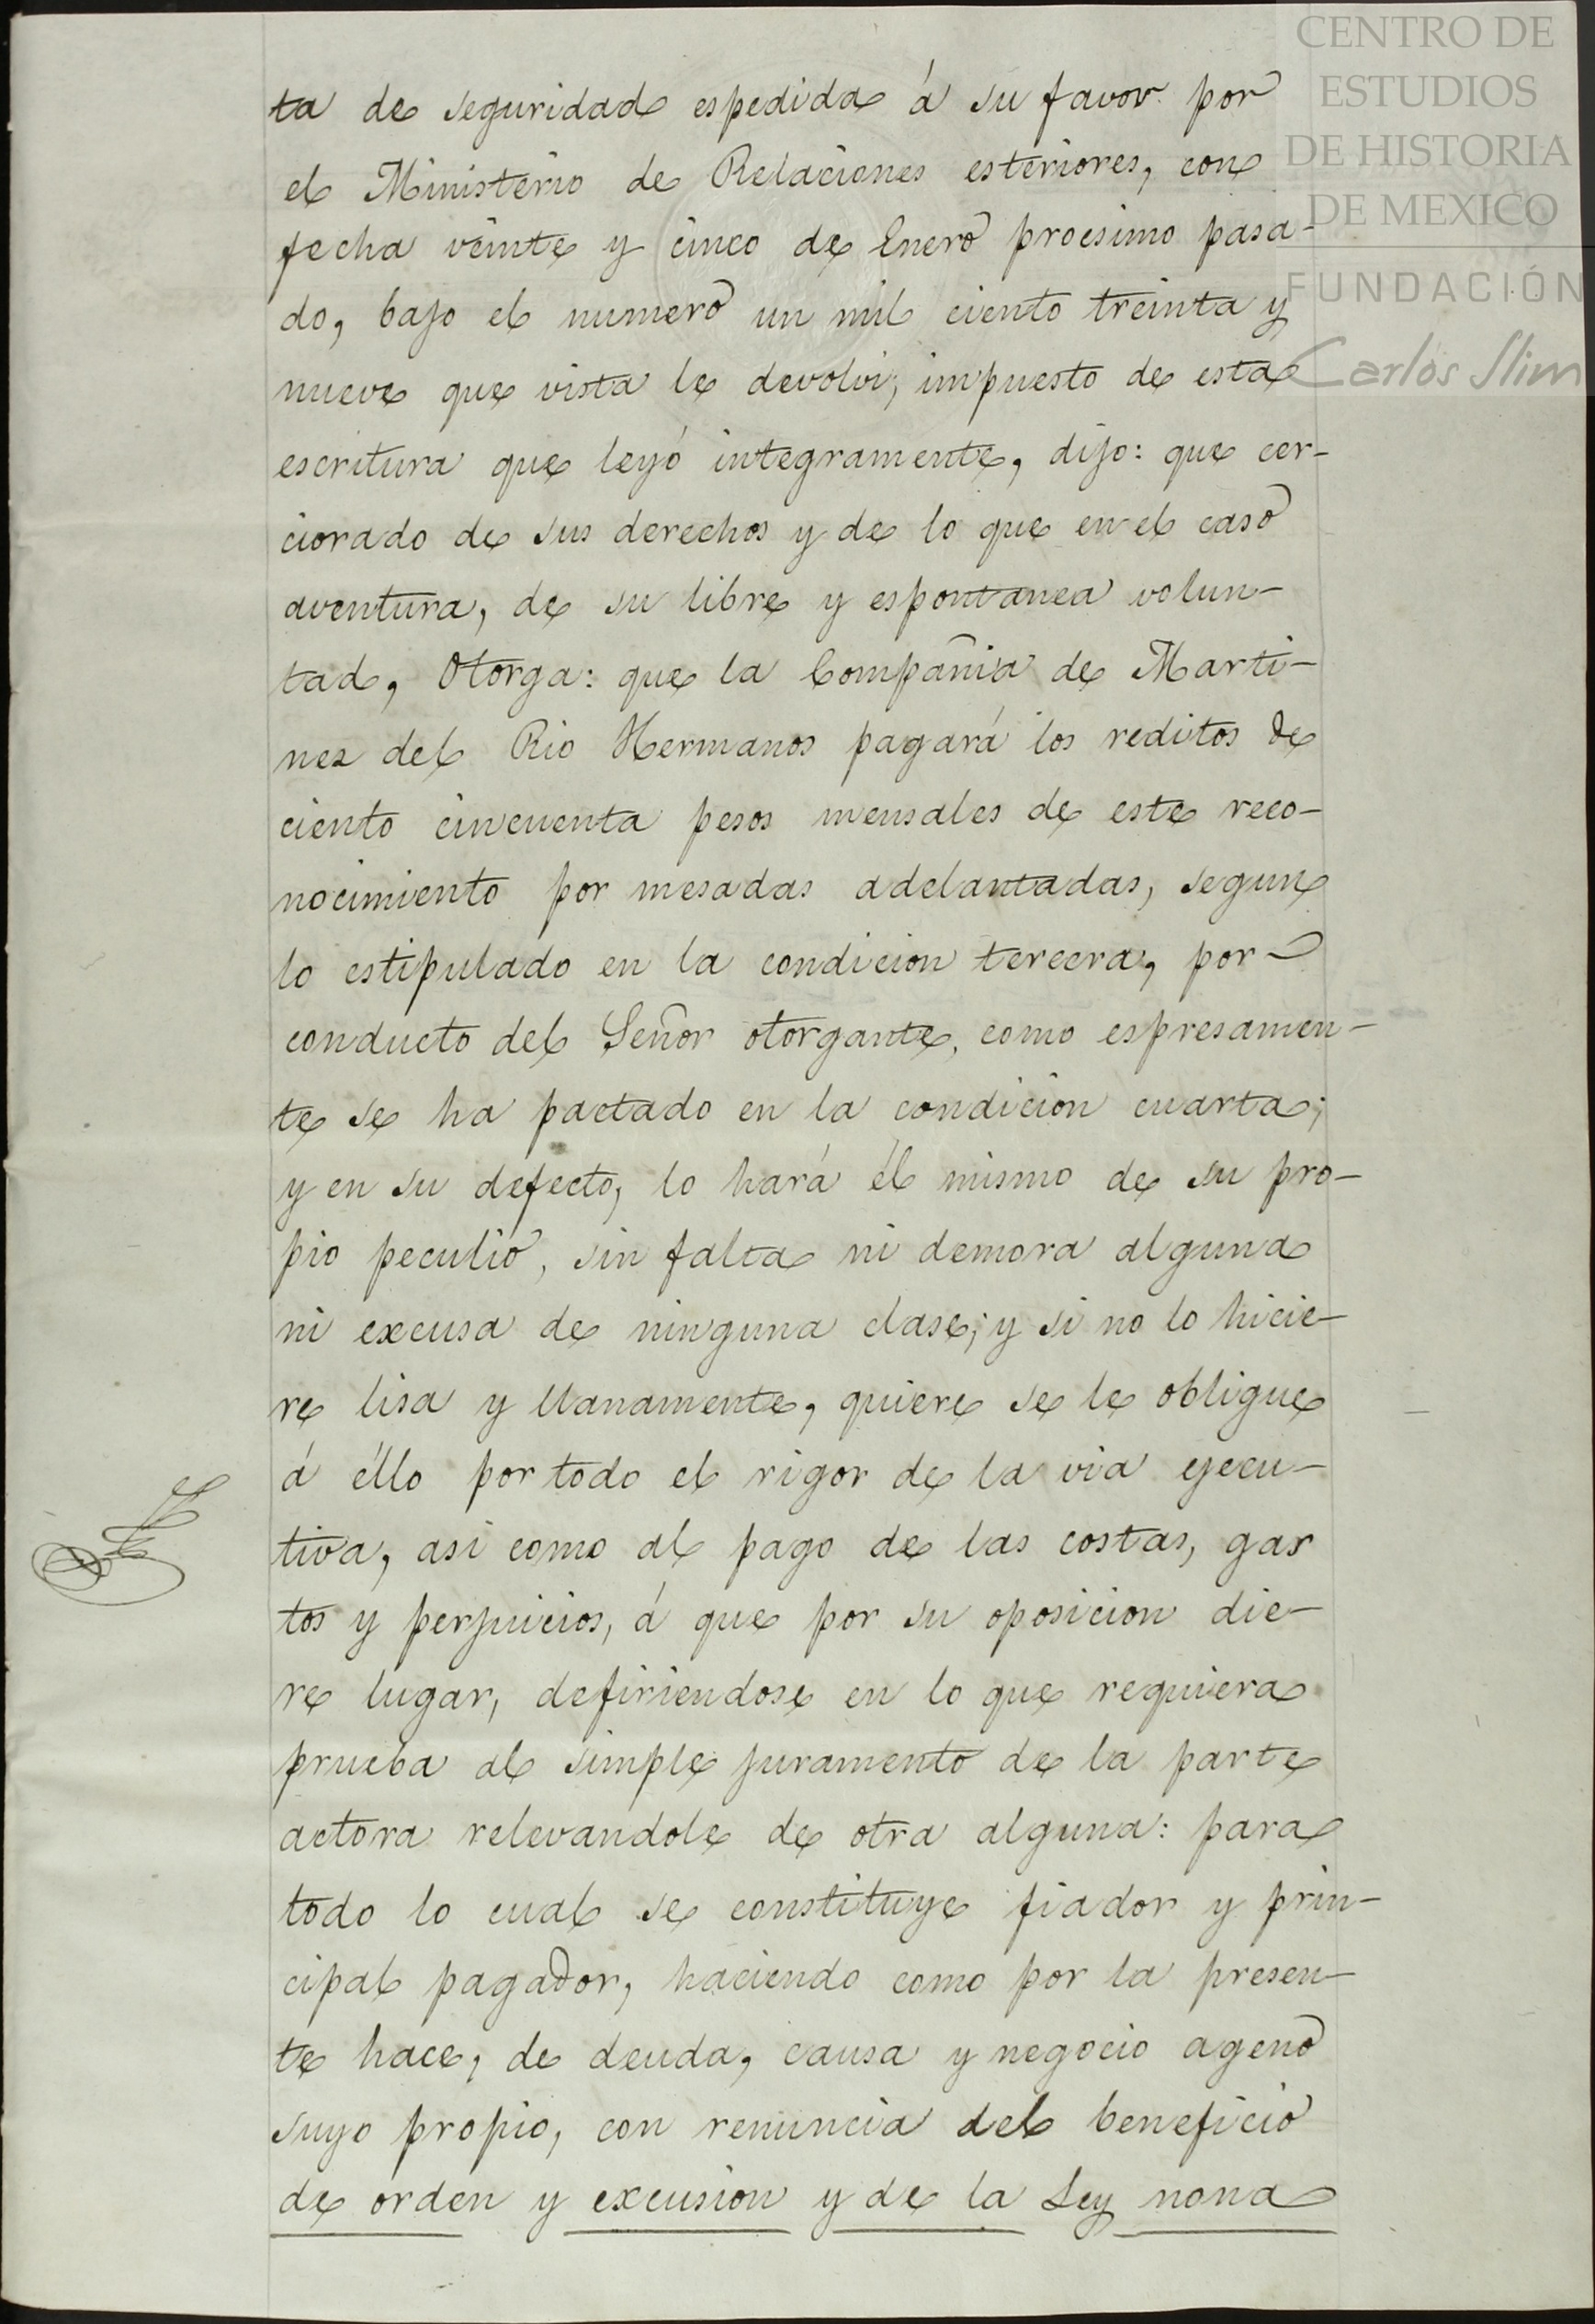 CENTRO DE
ESTUDIOS
DE HISTORIA
DE MEXICO
FUNDACIÓN
Carlos Slim
ta de seguridad espedida á su favor por
el Ministerio de Relaciones esteriores, con
fecha veinte y cinco de Enero procsimo pasa-
do, bajo el numero un mil ciento treinta y
nueve que vista le devolvi; impuesto de esta
escritura que leyó integramente, dijo: que cer-
ciorado de sus derechos y de lo que en el caso
aventura, de su libre y espontanea volun-
tad, Otorga: que la Compañia de Marti-
nez del Rio Hermanos pagará los reditos de
ciento cincuenta pesos mensales de este reco-
nocimiento por mesadas adelantadas, segun
lo estipulado en la condicion tercera, por
conducto del Señor otorgante, como espresamen-
te se ha pactado en la condicion cuarta;
y en su defecto, lo hará él mismo de su pro-
pio peculio, sin falta ni demora alguna
ni excusa de ninguna clase; y si no lo hicie-
re lisa y llanamente, quiere se le obligue
á éllo por todo el rigor de la via ejecu-
tiva, asi como al pago de las costas, gas
tos y perjuicios, á que por su oposicion die-
re lugar, defiriendose en lo que requiera
prueba al simple juramento de la parte
actora relevandole de otra alguna: para
todo lo cual se constituye fiador y prin-
cipal pagador, haciendo como por la presen-
te hace, de deuda, causa y negocio ageno
suyo propio, con renuncia del beneficio
de orden y excusion y de la Ley nona